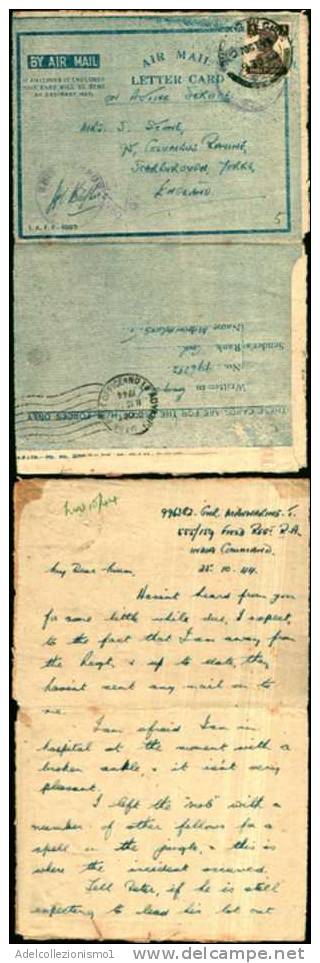 BY AIR MAIL
AIR MAIL
LETTER CARD
IF ANYTHING IS ENCLOSED
THIS CARD WILL BE SENT
BY ORDINARY MAIL
On Active Service
Mrs. S.
75, Columbus Ravine,
Scarborough, Yorks,
England.
5
THESE CARDS ARE FOR THE USE OF H.M. FORCES ONLY
Written in
No. 996282
Sender's Rank Gnr.
Name
1944
996282. Gnr. S.
555/159 Field Regt. R.A.
India Command.
My Dear Mum, 25. 10. 44.
Havent heard from you
for some little while due, I expect,
to the fact that I am away from
the Regt. & up to date, they
havent sent any mail on to
me.
I am afraid I am in
hospital at the moment with a
broken ankle & it isnt very
pleasant.
I left the "mob" with a
number of other fellows for a
spell in the jungle, & this is
where the incident occured.
Tell Peter, if he is still
expecting to lead his lot out
Adelcollezionismo1